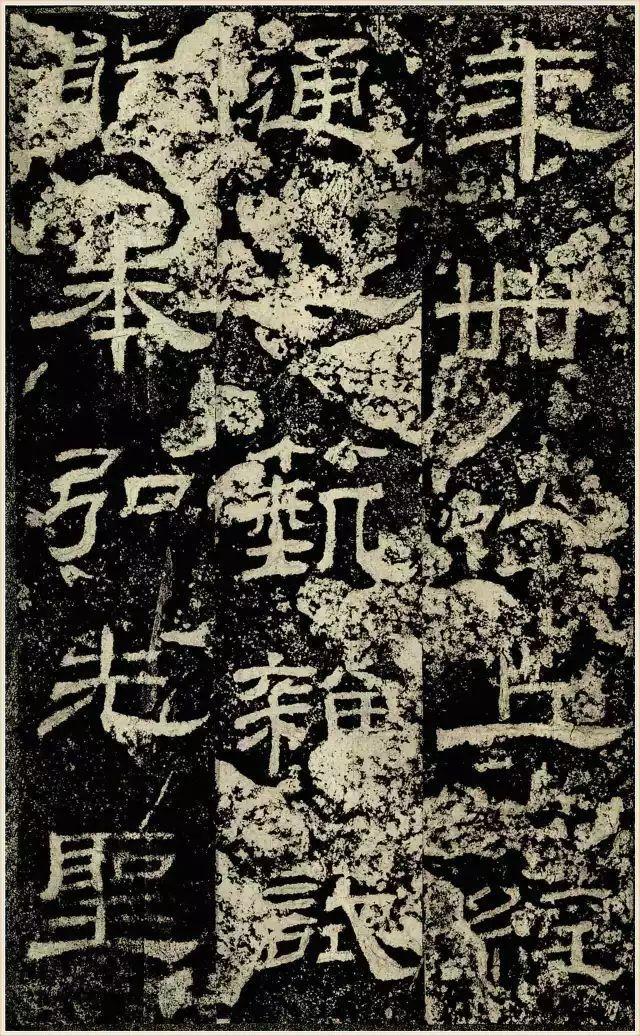 年卌以上經
通一埶雜試
能奉弘先聖